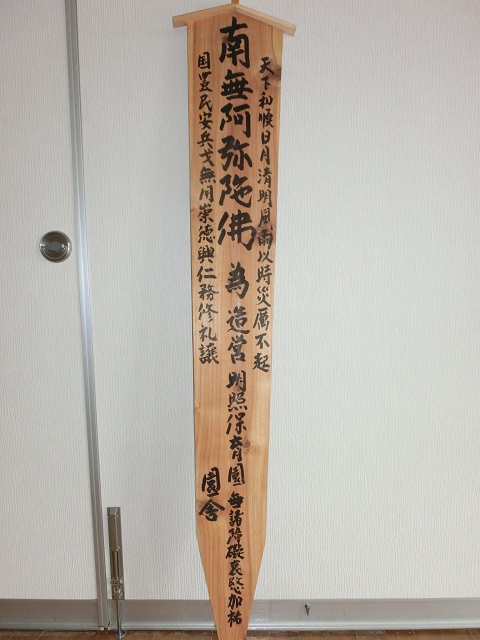 天下和順日月清明風雨以時災厲不起
南無阿弥陀佛為造営明照保育園園舎無諸障礙哀愍加祐
国豊民安兵戈無用崇徳興仁務修礼譲